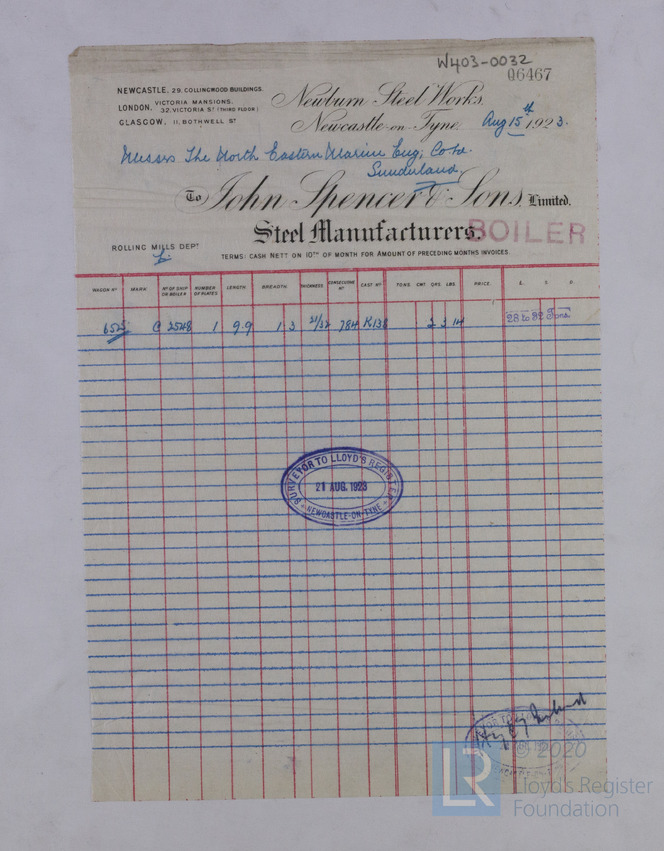 W403-0032
06467
NEWCASTLE. 29. COLLINGWOOD BUILDINGS.
LONDON. VICTORIA MANSIONS. 32. VICTORIA ST (THIRD FLOOR)
GLASGOW. 11. BOTHWELL ST
Newburn Steel Works.
Newcastle-on-Tyne. Aug 15th 1923.
Messrs The North Eastern Marine Eng; Co Ld.
Sunderland
To John Spencer & Sons, Limited.
Steel Manufacturers.
BOILER
ROLLING MILLS DEPT
TERMS: CASH NETT ON 10TH OF MONTH FOR AMOUNT OF PRECEDING MONTHS INVOICES.
WAGON No MARK No OF SHIP OR BOILER NUMBER OF PLATES LENGTH. BREADTH. THICKNESS CONSECUTIVE No CAST No TONS CWT QRS LBS PRICE. £. S. D.
6525 C 2548 1 9.9 1 3 21/32 784 K138 2 3 14 28 to 32 Tons
SURVEYOR TO LLOYD'S REGISTER
21 AUG. 1923
NEWCASTLE-ON-TYNE
© 2020
LR Lloyd's Register
Foundation